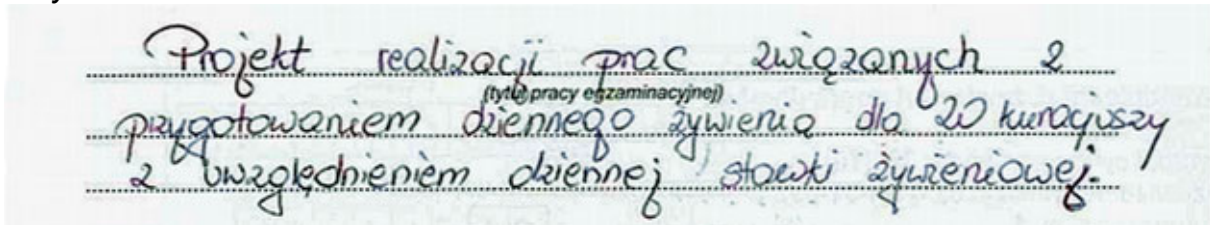 Projekt realizacji prac związanych z
(tytuł pracy egzaminacyjnej)
przygotowaniem dziennego żywienia dla 20 kuracjuszy
z uwzględnieniem dziennej stawki żywieniowej.